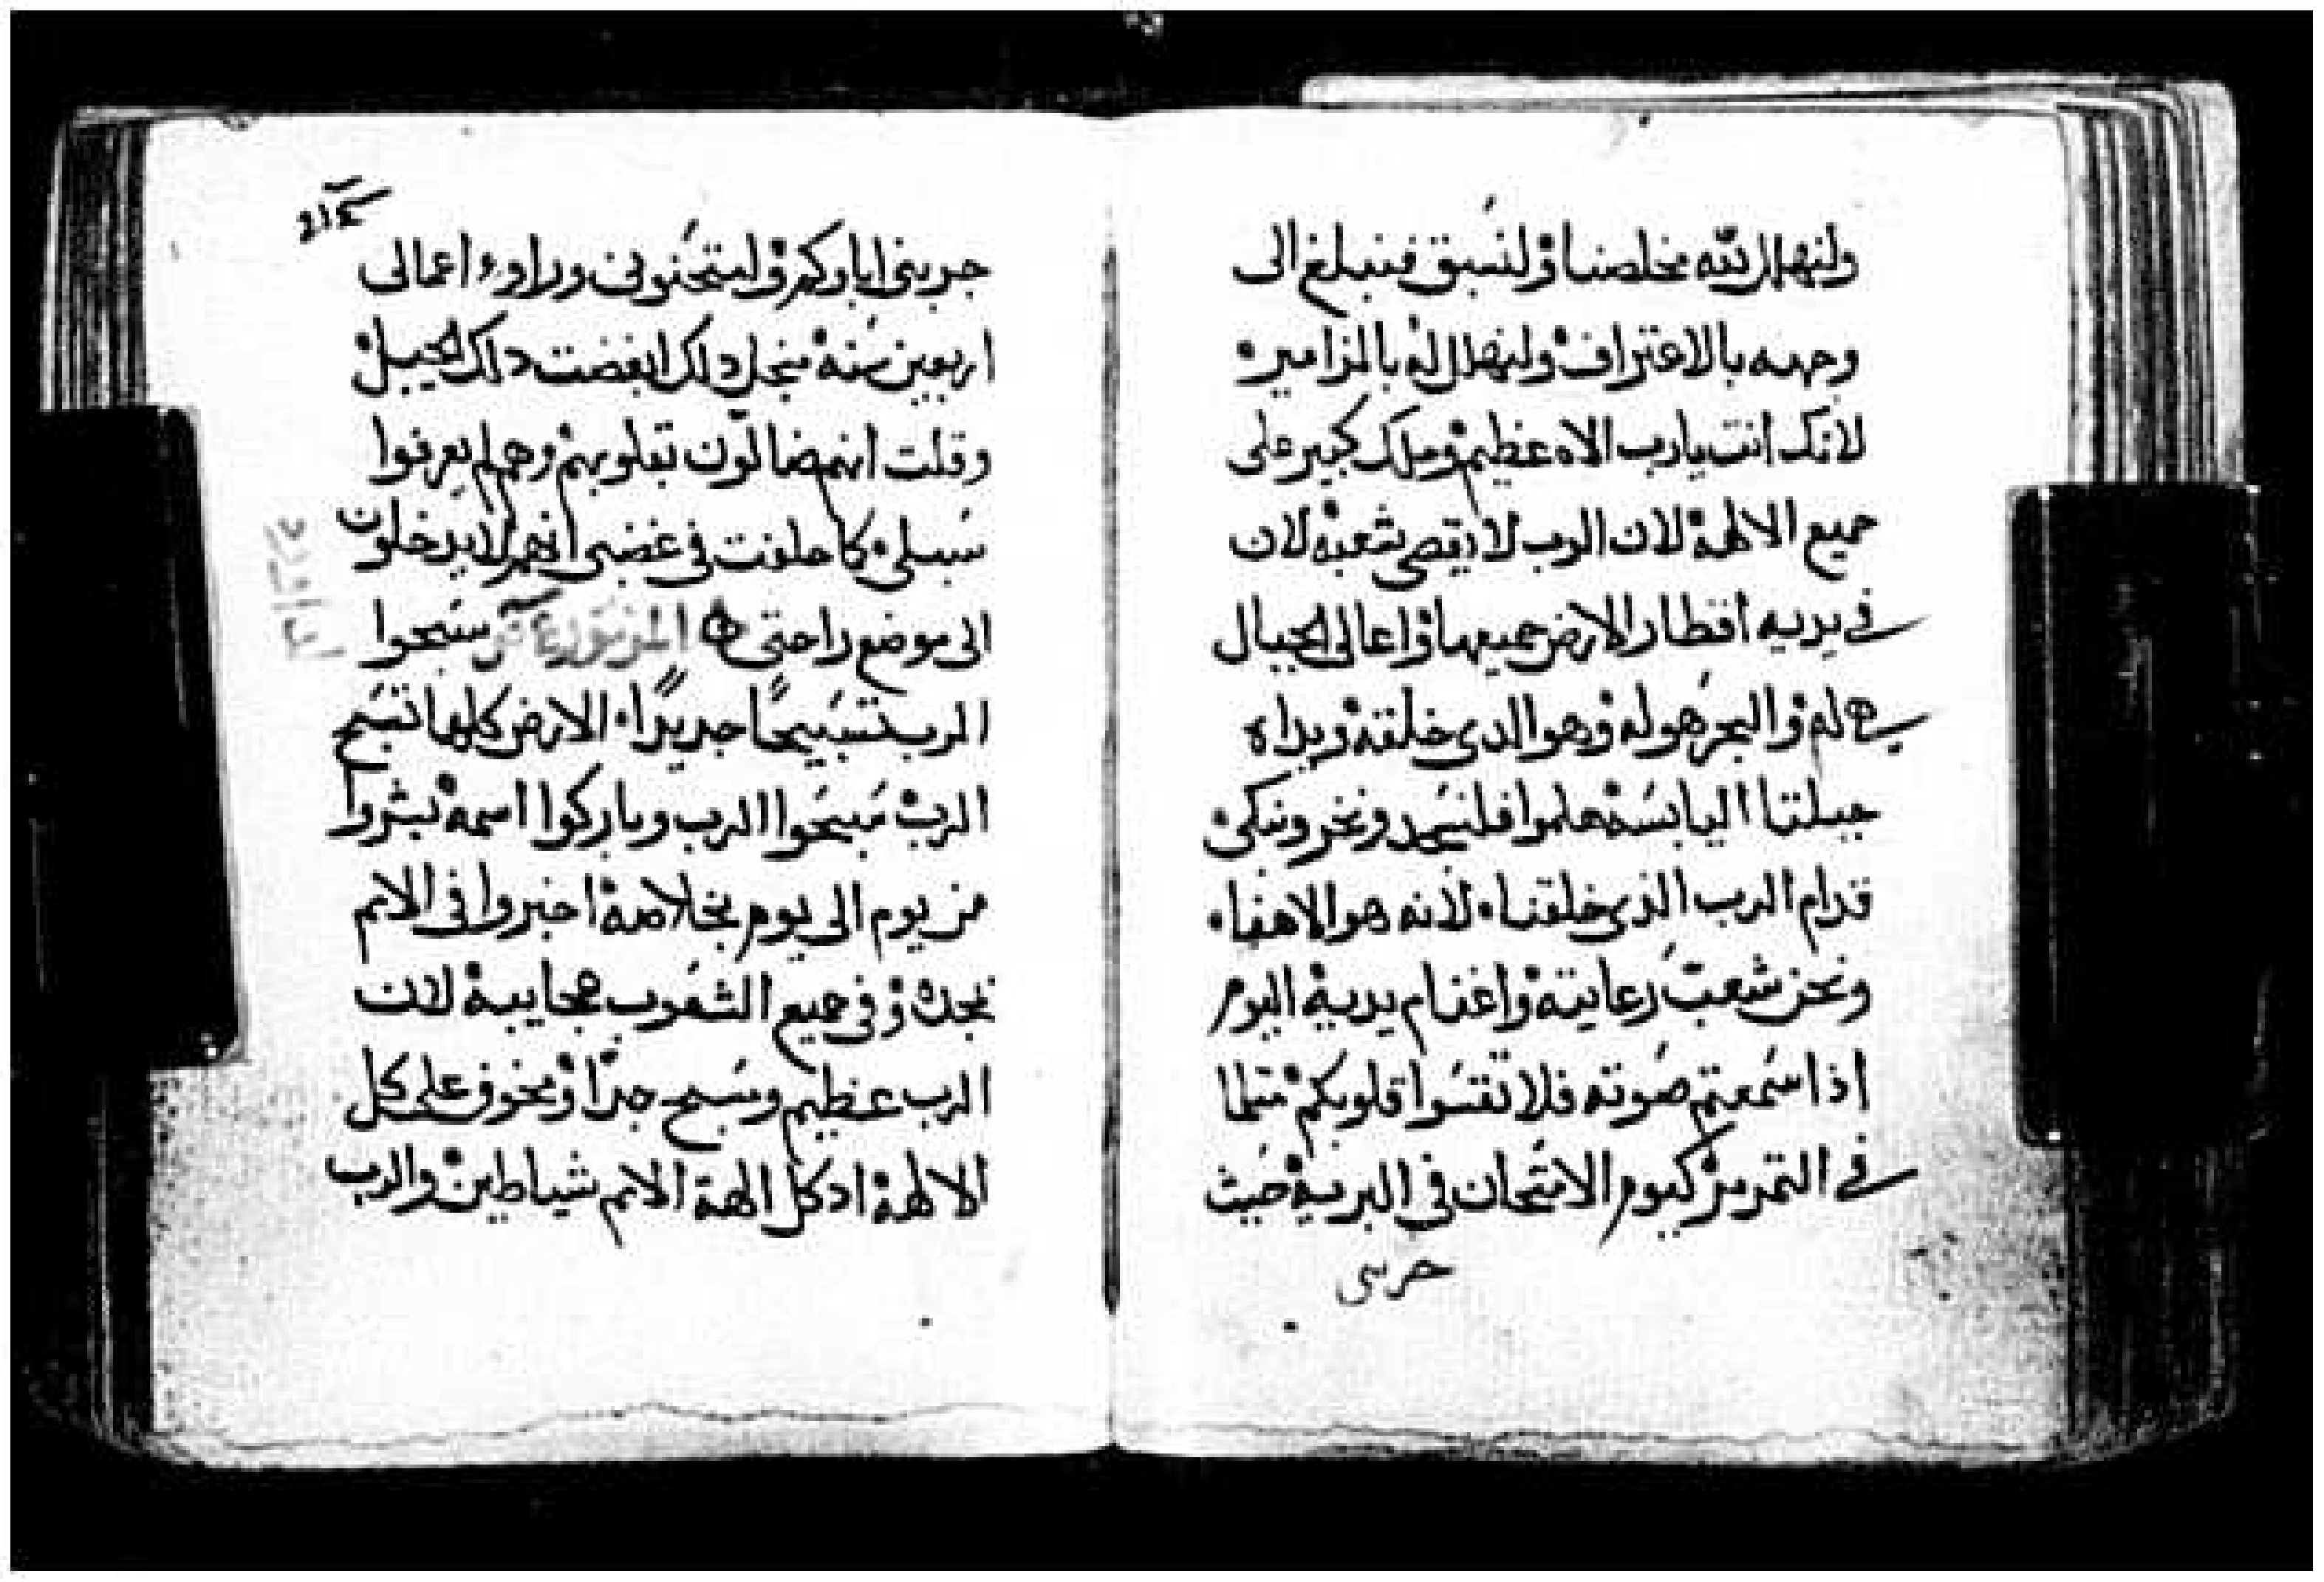 ولنهلل لله مخلصنا ولنسبق فنبلغ الى
وجهه بالاعتراف ولنهلل له بالمزامير
لانك انت يارب الاه عظيم وملك كبير على
جميع الالهة لان الرب لا يقصى شعبه لان
في يديه اقطار الارض جميعها واعالى الجبال
هى له والبحر هو له وهو الدى خلقه ويداه
جبلتا اليابسة هلموا فلنسجد ونخر ونبكى
قدام الرب الذى خلقنا لانه هو الاهنا
ونحن شعب رعايته واغنام يديه اليوم
اذا سمعتم صوته فلا تقسوا قلوبكم مثلما
في التمرمر كيوم الامتحان في البرية حيث
جربنى
جربنى اباوكم وامتحنونى وراوء اعمالى
اربعين سنة منجل دلك ابغضت دلك الجيل
وقلت انهم ضالون بقلوبهم وهم لم يعرفوا
سبلى كما حلفت في غضبى انهم لا يدخلون
الى موضع راحتى المزمور سبحوا
الرب تسبيحًا جديدًا الارض كلها تسبح
الرب سبحوا الرب وباركوا اسمه بشروا
من يوم الى يوم بخلاصه اخبروا فى الامم
بمجده وفي جميع الشعوب عجايبه لان
الرب عظيم ومسبح جدًا ومخوف على كل
الالهة اد كل الهة الامم شياطين والرب